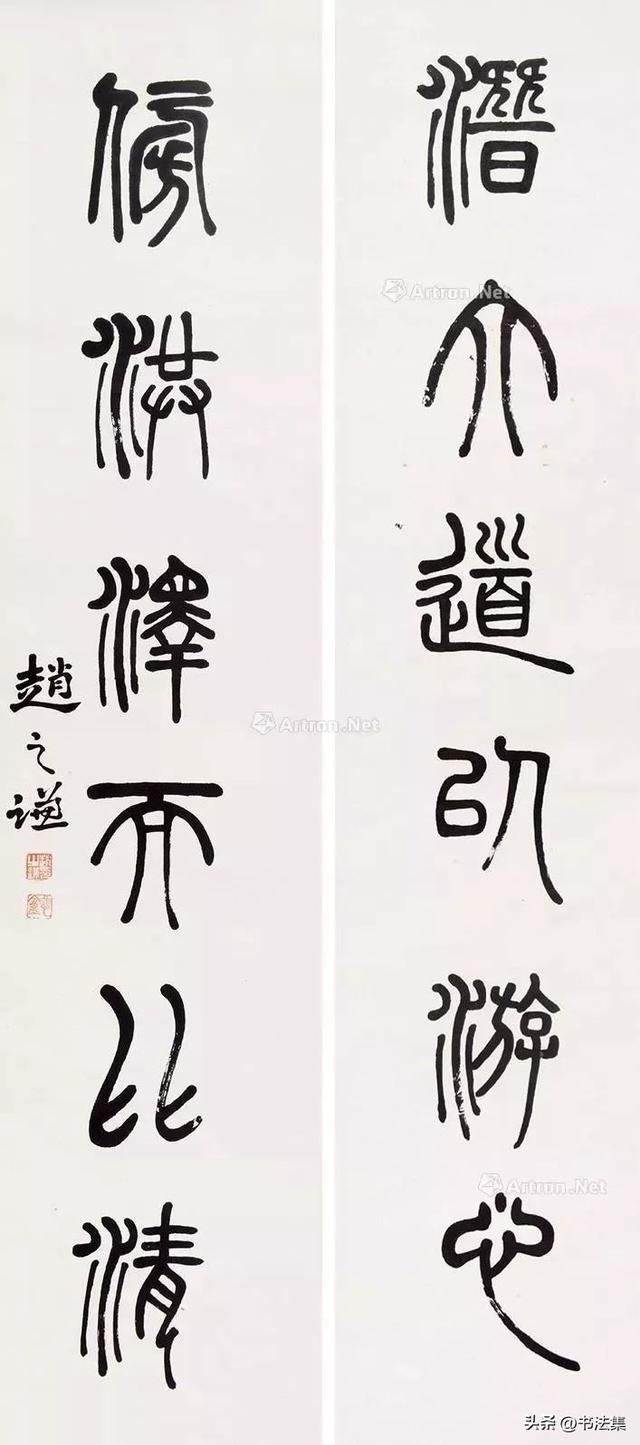 潛大道以游心
傍洪澤而比清
趙之謙
Artron.Net
Artron.Net
Artron.Net
头条 @书法集